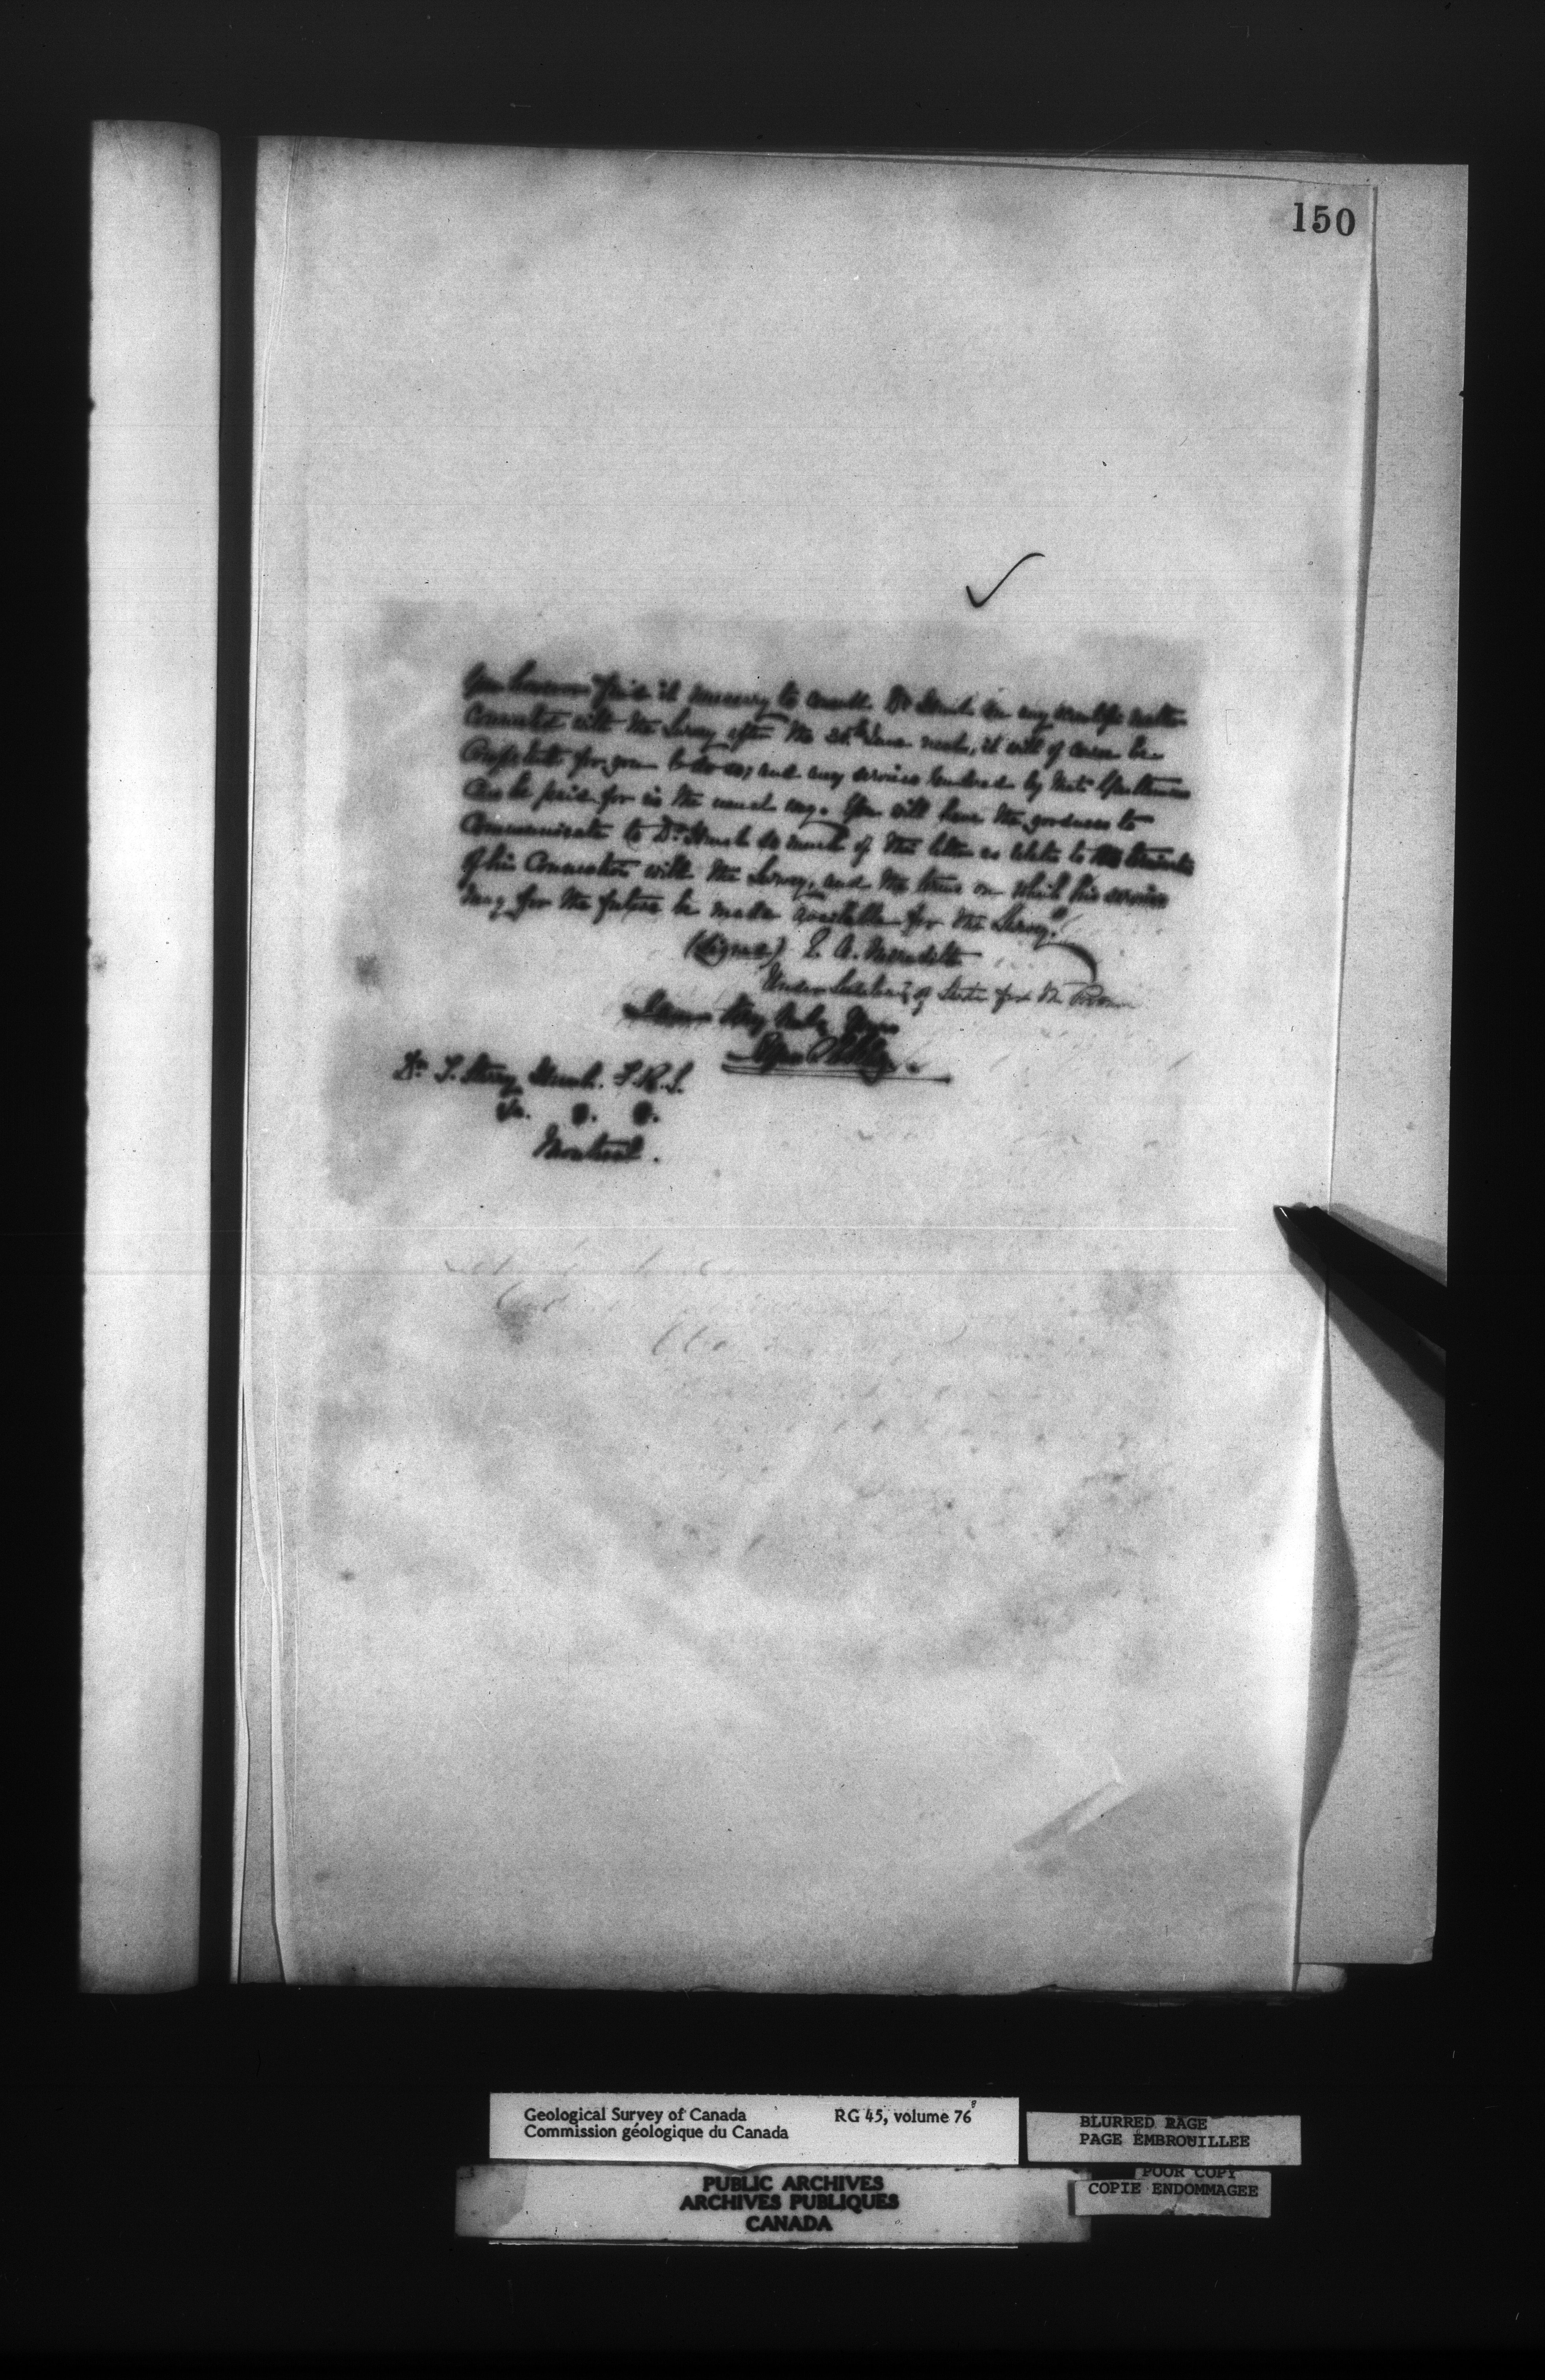 150
find it necessary to consult Dr Hunt on any scientific matter
connected with the Survey after the June next, it will of course be
competent for you to do so; and any services rendered by that Gentleman
can be paid for in the usual way. You will have the goodness to
communicate to Dr. Hunt so much of this letter as relates to the
of his Connection with the Survey, and the terms on which his services
may for the future be made available for the Survey."
(Signed) E. A. Meredith
Under Secretary of State for the
I am Very truly Yours
Dr. T. Sterry Hunt. F.R.S.
Montreal.
Geological Survey of Canada RG 45, volume 76
Commission géologique du Canada
BLURRED PAGE
PAGE EMBROUILLEE
POOR COPY
COPIE ENDOMMAGEE
PUBLIC ARCHIVES
ARCHIVES PUBLIQUES
CANADA